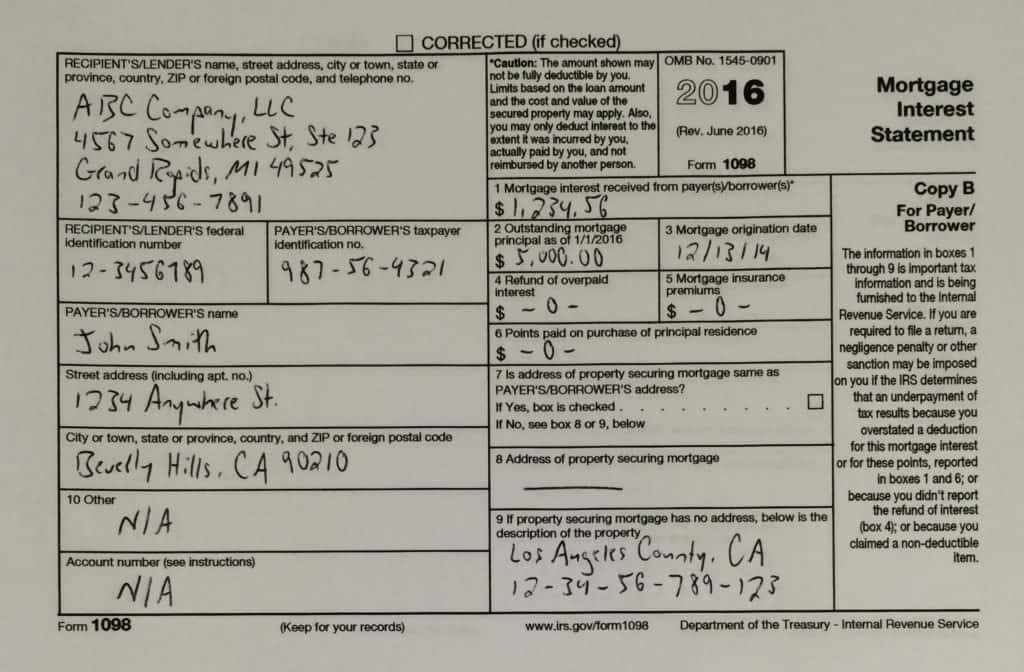 CORRECTED (if checked)
RECIPIENT'S/LENDER'S name, street address, city or town, state or
province, country, ZIP or foreign postal code, and telephone no.
ABC Company, LLC
4567 Somewhere St, Ste 123
Grand Rapids, MI 49525
123-456-7891
*Caution: The amount shown may
not be fully deductible by you.
Limits based on the loan amount
and the cost and value of the
secured property may apply. Also,
you may only deduct interest to the
extent it was incurred by you,
actually paid by you, and not
reimbursed by another person.
OMB No. 1545-0901
2016
(Rev. June 2016)
Form 1098
Mortgage
Interest
Statement
1 Mortgage interest received from payer(s)/borrower(s)*
$ 1,234.56
RECIPIENT'S/LENDER'S federal
identification number
12-3456789
PAYER'S/BORROWER'S taxpayer
identification no.
987-56-4321
2 Outstanding mortgage
principal as of 1/1/2016
$ 5,000.00
3 Mortgage origination date
12/13/14
4 Refund of overpaid
interest
$ -0-
5 Mortgage insurance
premiums
$ -0-
PAYER'S/BORROWER'S name
John Smith
6 Points paid on purchase of principal residence
$ -0-
Street address (including apt. no.)
1234 Anywhere St.
7 Is address of property securing mortgage same as
PAYER'S/BORROWER'S address?
If Yes, box is checked . . . . . . . . .
If No, see box 8 or 9, below
City or town, state or province, country, and ZIP or foreign postal code
Beverly Hills, CA 90210
8 Address of property securing mortgage
10 Other
N/A
9 If property securing mortgage has no address, below is the
description of the property
Los Angeles County, CA
12-34-56-789-123
Account number (see instructions)
N/A
Copy B
For Payer/
Borrower
The information in boxes 1
through 9 is important tax
information and is being
furnished to the Internal
Revenue Service. If you are
required to file a return, a
negligence penalty or other
sanction may be imposed
on you if the IRS determines
that an underpayment of
tax results because you
overstated a deduction
for this mortgage interest
or for these points, reported
in boxes 1 and 6; or
because you didn't report
the refund of interest
(box 4); or because you
claimed a non-deductible
item.
Form 1098
(Keep for your records)
www.irs.gov/form1098
Department of the Treasury - Internal Revenue Service